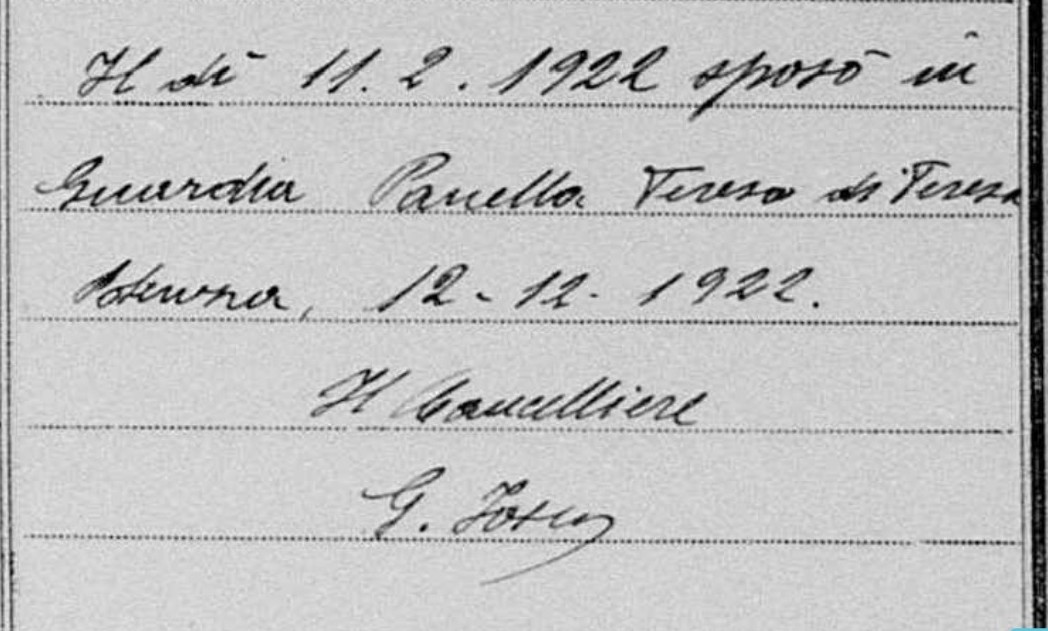 Il dì 11.2.1922 sposò in
Guardia Panella Teresa di Teresa
12-12-1922.
Il Cancelliere
G.